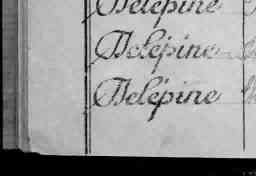 Delépine
Delépine
Delépine